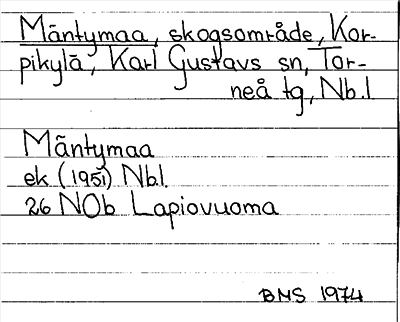 Mäntymaa, skogsområde, Kor-
pikylä, Karl Gustavs sn, Tor-
neå tg, Nb.l
Mäntymaa
ek (1951) Nbl.
26 NOb Lapiovuoma
BMS 1974